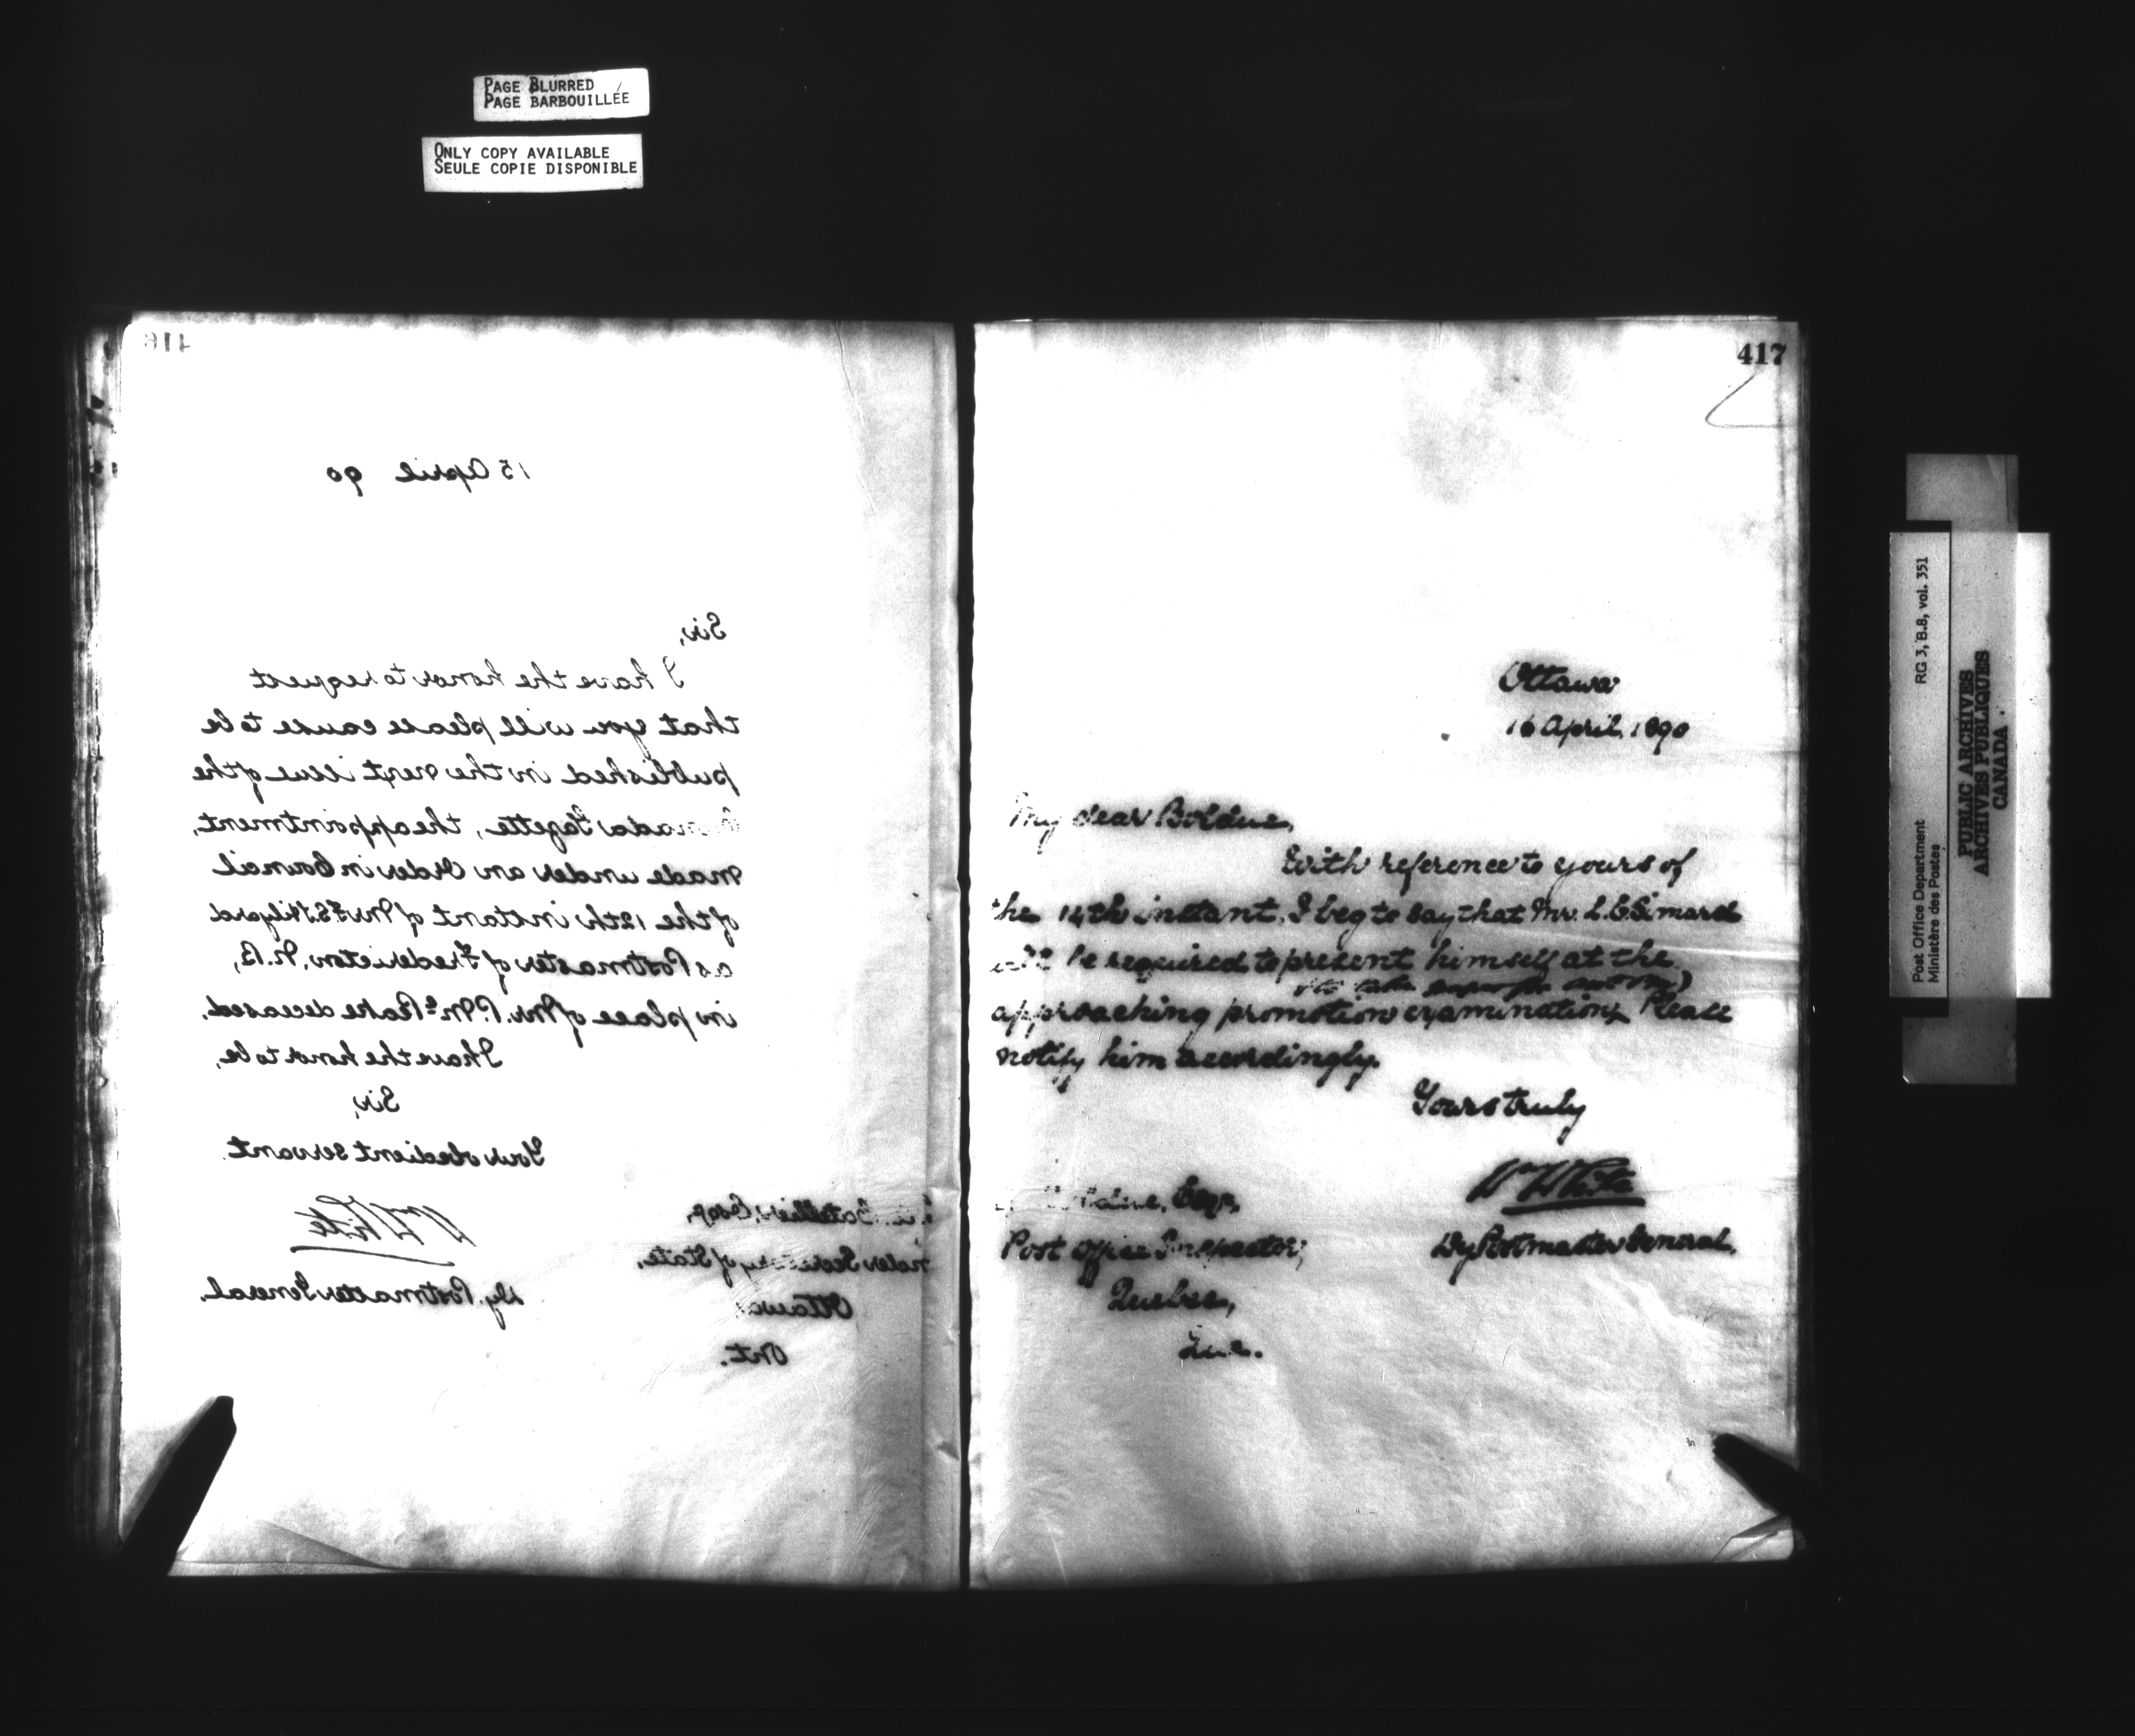 PAGE BLURRED
PAGE BARBOUILLÉE
ONLY COPY AVAILABLE
SEULE COPIE DISPONIBLE
416
15 April 90
Sir,
I have the honor to request
that you will please cause to be
published in the next issue of the
Canada Gazette, the appointment,
made under an Order in Council
of the 12th instant of Mr. F. S. Hilyard
as Postmaster of Fredericton, N.B.,
in place of Mr. P. McPeake deceased.
I have the honor to be,
Sir,
Your obedient servant.
Wm White
Dy. Postmaster General.
Catellier, Esqr,
Under Secretary of State,
Ottawa
Ont.
417
Ottawa
16 April, 1890
My dear Bolduc,
With reference to yours of
the 14th instant, I beg to say that Mr. L. E. Simard
will be required to present himself at the
approaching promotion examination, Please
notify him accordingly.
Yours truly
Wm White
Dy Postmaster General.
Bolduc, Esqr,
Post Office Inspector,
Quebec,
Que.
Post Office Department
Ministère des Postes
RG 3, B.8, vol. 351
PUBLIC ARCHIVES
ARCHIVES PUBLIQUES
CANADA